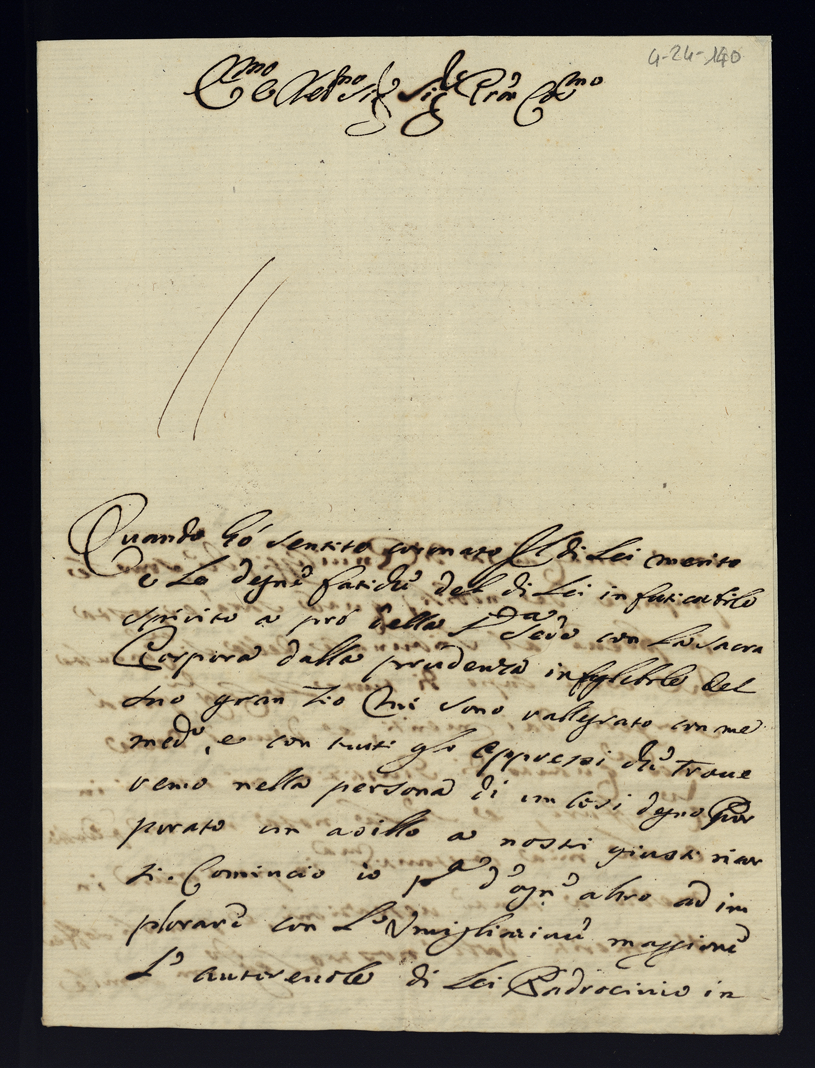 4-24-140
Em.mo e Rev.mo Sig.r Sig.re Pron Col.mo
Quando hò sentito coronato il di Lei merito
e le degne fatiche del di Lei infaticabile
spirito a prò della S.ta Sede con la sacra
Porpora dalla prudenza infallibile del
suo gran Zio mi sono rallegrato con me
med.o, e con tutti gli oppressi che trove
remo nella persona di un così degno Por
porato un asillo a nostri giusti ricor
si. Comincio io p.a d'ogn'altro ad im
plorare con l'Umigliazione maggiore
l'autorevole di Lei Padrocinio in